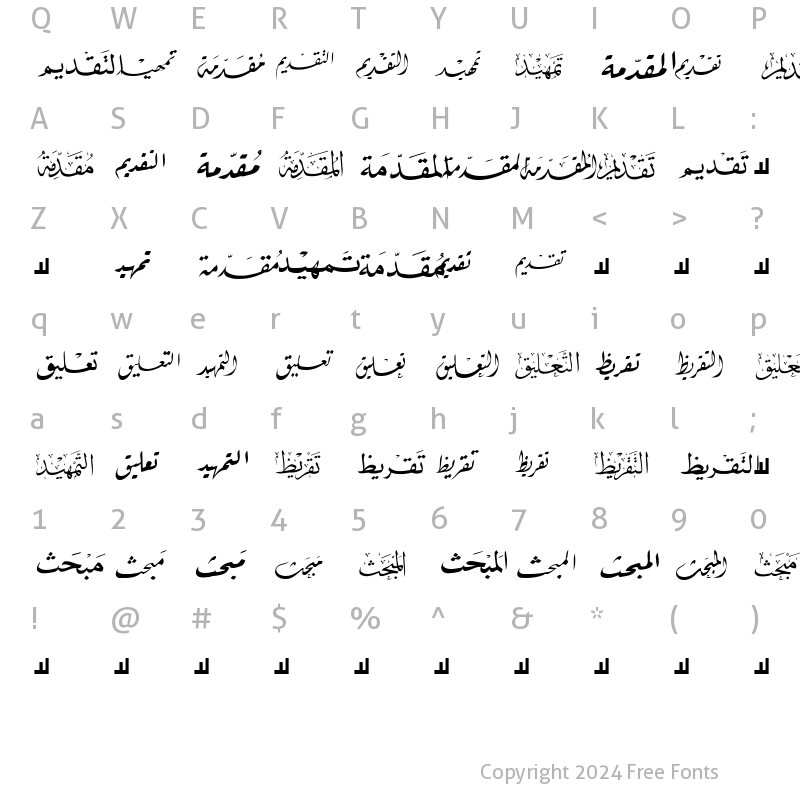 Q W E R T Y U I O P
التقديم تمهيد مقدمة التقديم التقديم تمهيد تمهيد المقدمة تقديم
A S D F G H J K L :
مقدمة التقديم مقدمة المقدمة المقدمة المقدمة المقدمة تقديم تقديم لا
Z X C V B N M < > ?
لا تمهيد مقدمة تمهيد مقدمة تقديم تقديم لا لا لا
q w e r t y u i o p
تعليق التعليق التمهيد تعليق تعليق التعليق التعليق تقريظ التقريظ تعليق
a s d f g h j k l ;
التمهيد تعليق التمهيد تقريظ تقريظ تقريظ تقريظ التقريظ التقريظ لا
1 2 3 4 5 6 7 8 9 0
مبحث مبحث مبحث مبحث المبحث المبحث المبحث المبحث المبحث مبحث
! @ # $ % ^ & * ( )
لا لا لا لا لا لا لا لا لا لا
Copyright 2024 Free Fonts